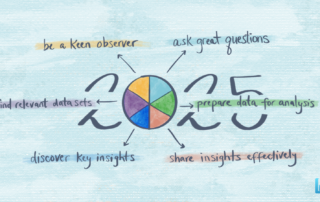 be a keen observer
ask great questions
find relevant datasets
2025
prepare data for analysis
discover key insights
share insights effectively